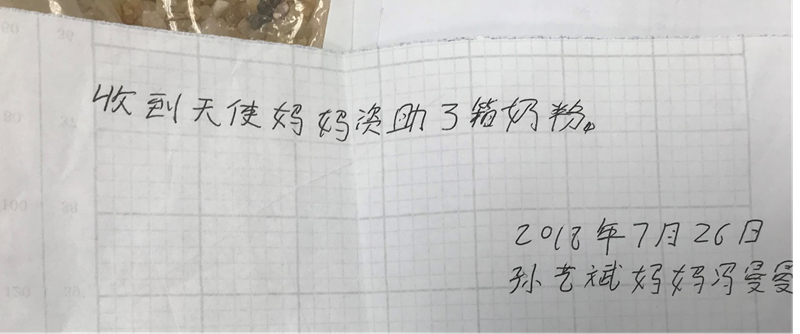 收到天使妈妈资助3箱奶粉。
2018年7月26日
孙艺斌妈妈冯曼曼